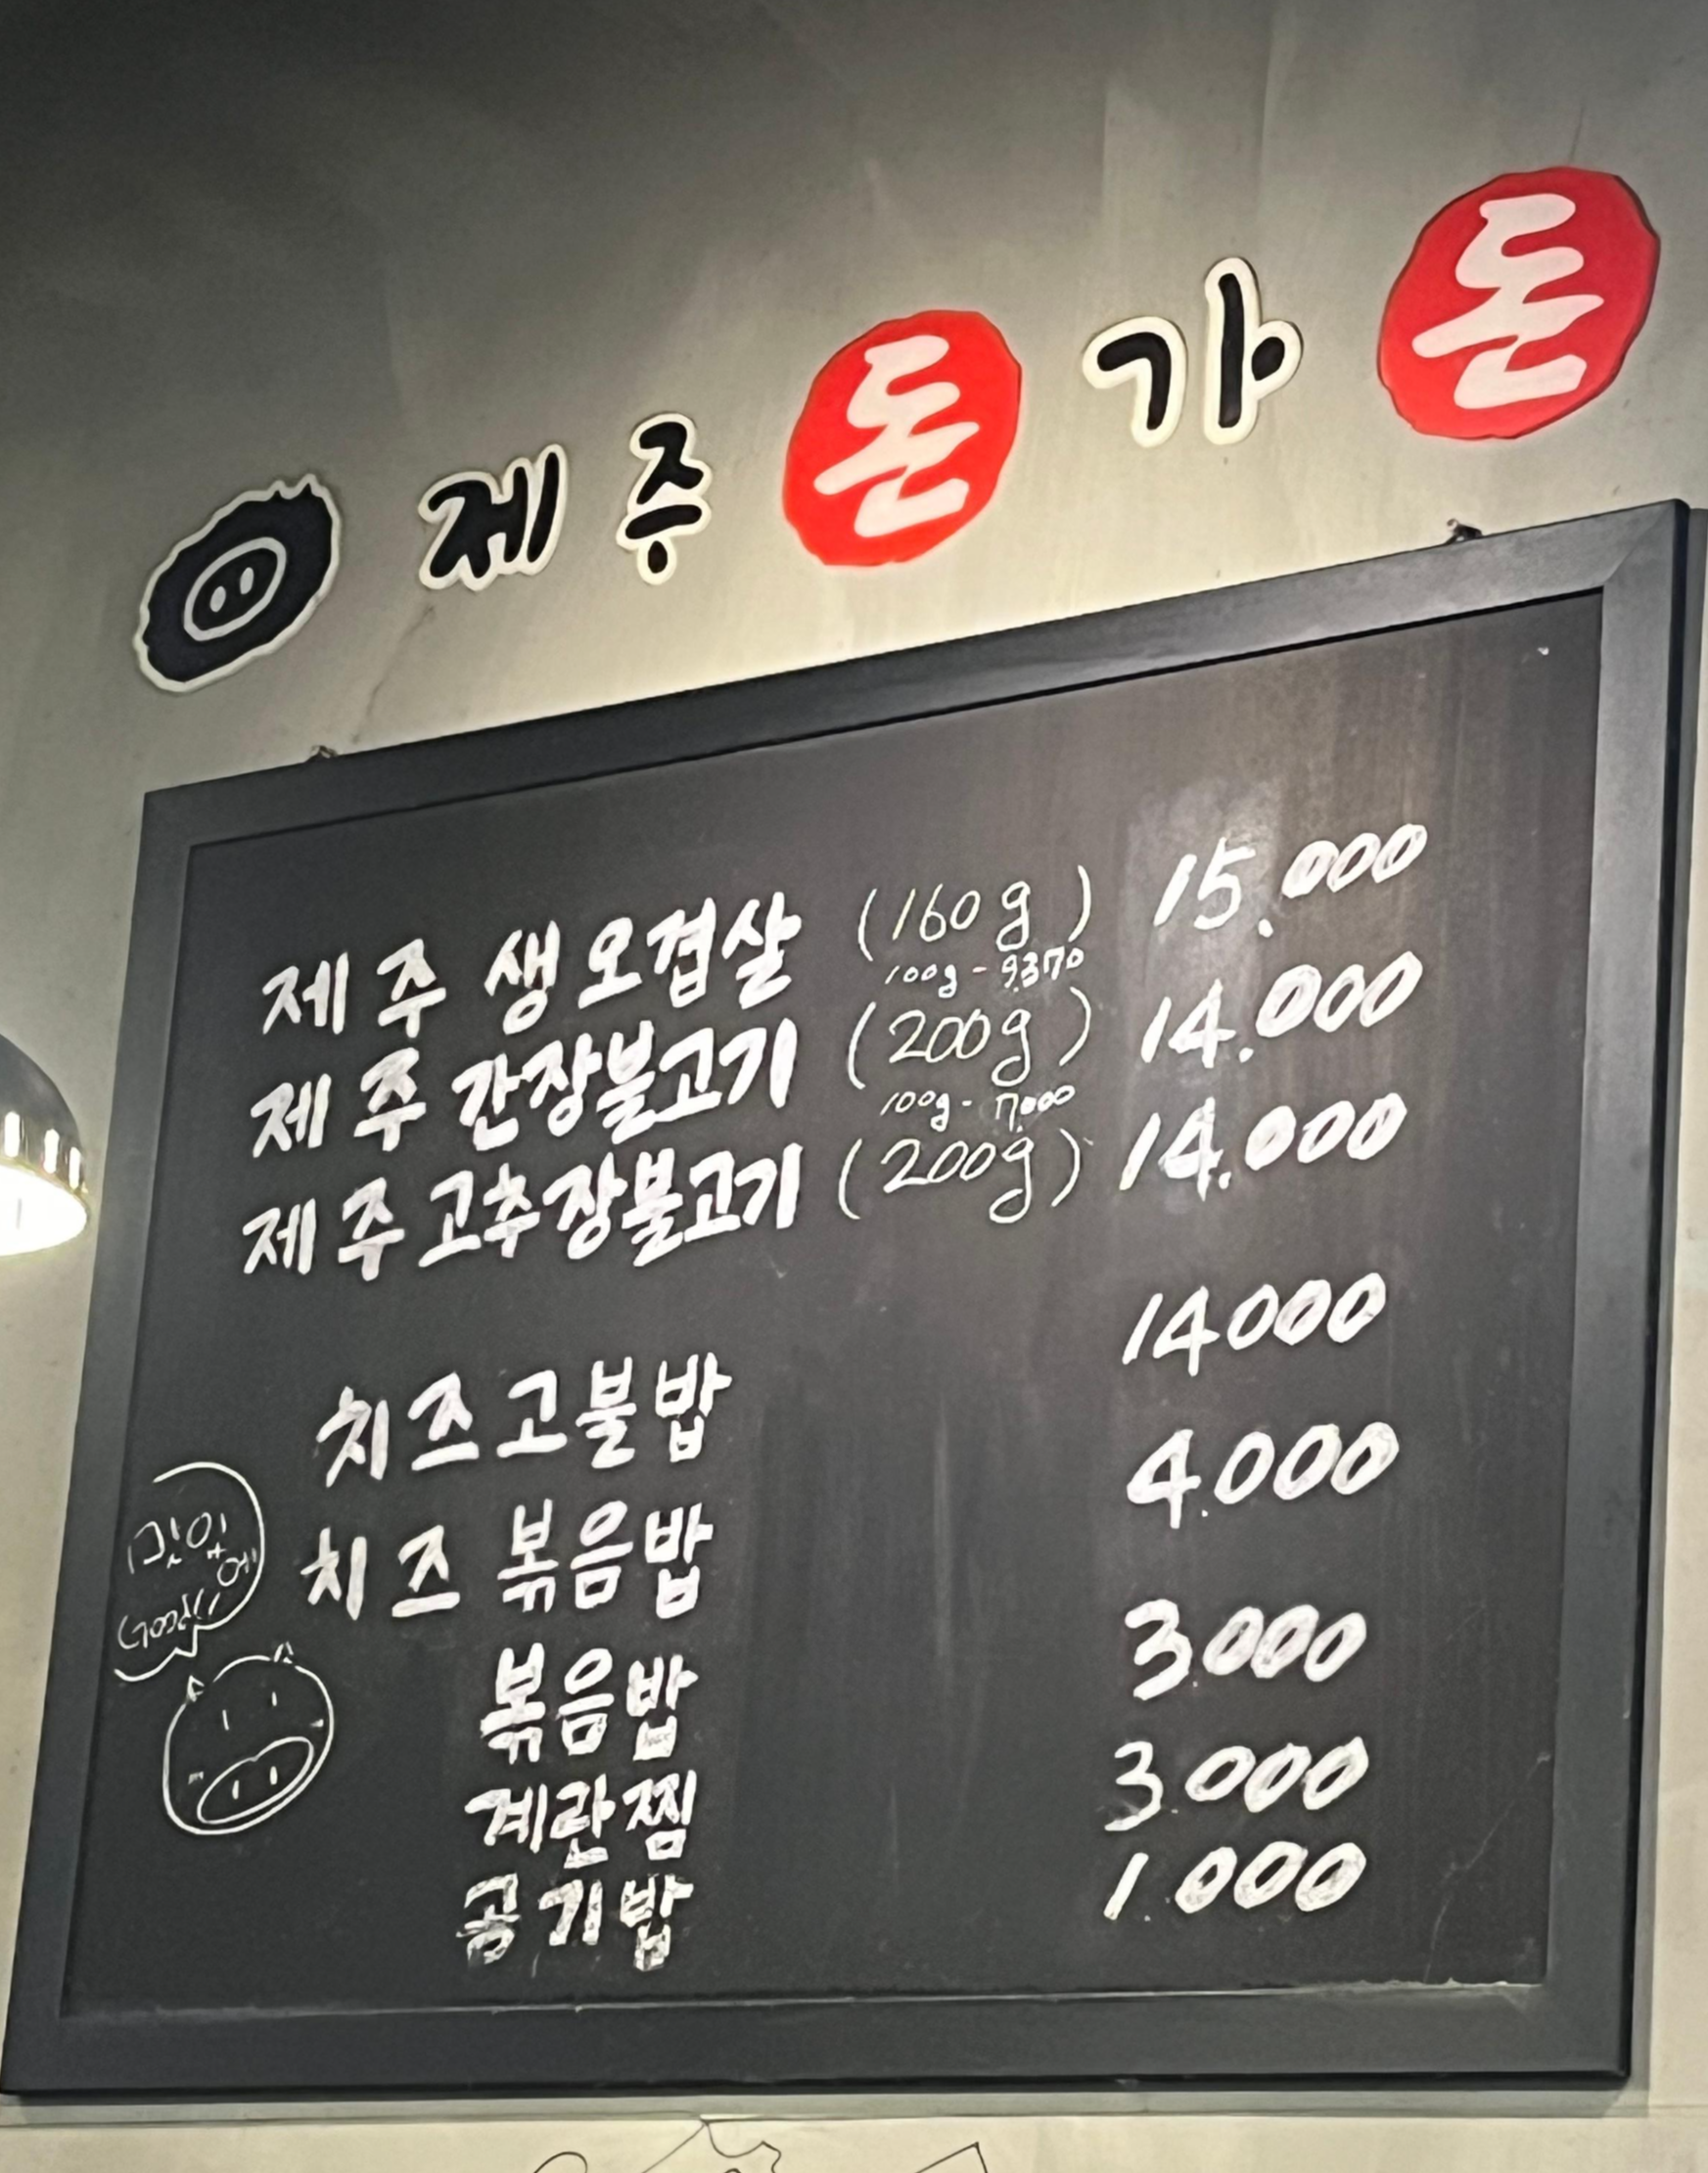 제주돈가돈
제주 생오겹살 (160g) 15.000
100g - 9.370
제주 간장불고기 (200g) 14.000
100g - 7.000
제주 고추장불고기 (200g) 14.000
치즈고불밥 14000
치즈 볶음밥 4.000
볶음밥 3.000
계란찜 3.000
공기밥 1.000
Good